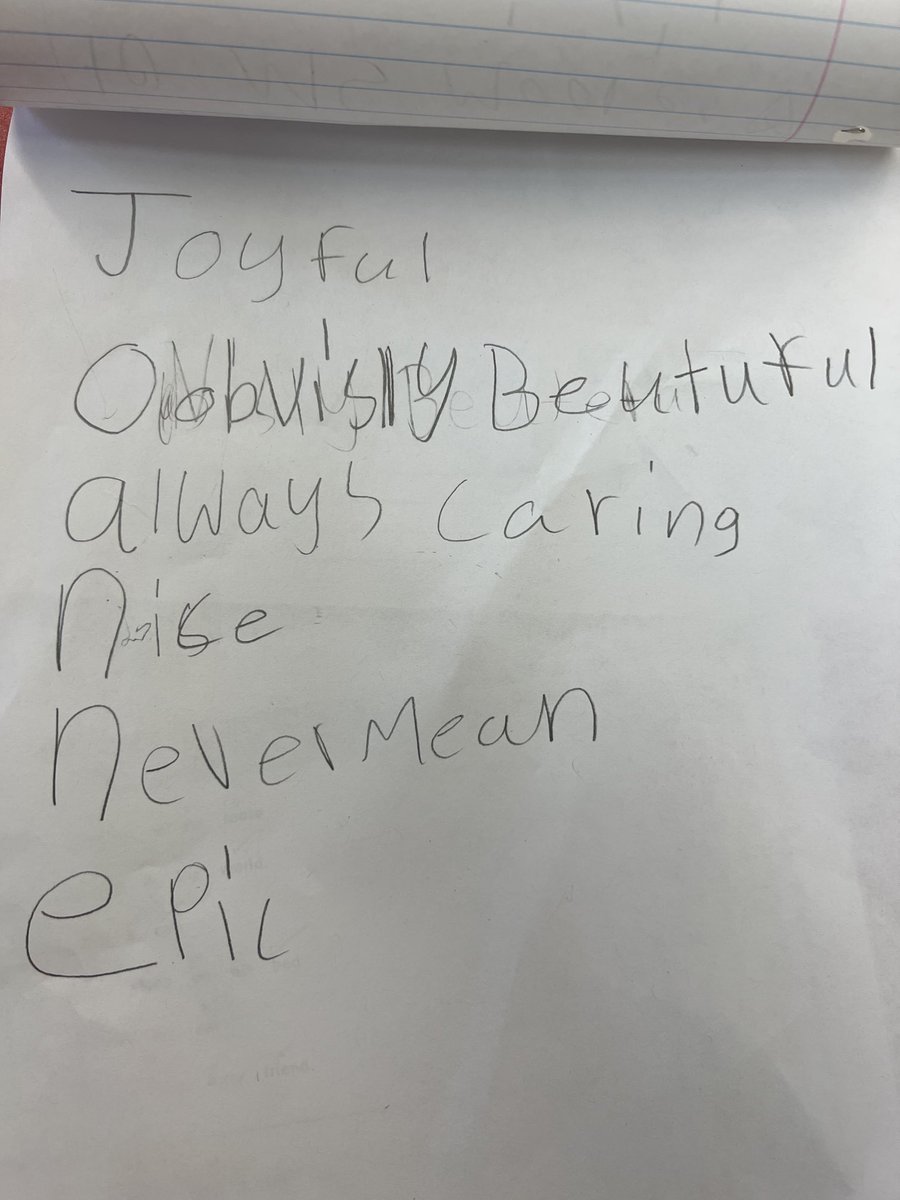 Joyful
Obvisly Beautuful
always caring
nise
never Mean
epic